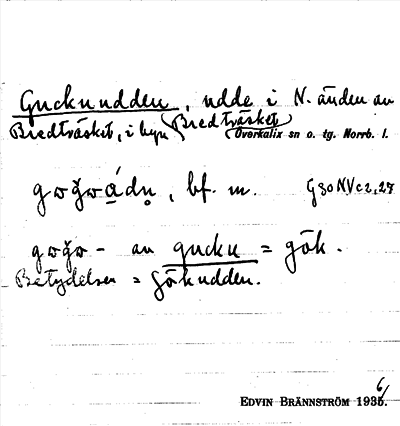 Guckuudden, udde i N. änden av
Bredträsket, i byn Bredträsket
Överkalix sn o. tg. Norrb. l.
gɷğɷádṇ, bf. m. G30NVc2,27
gɷğɷ- av gucku = gök.
Betydelsen = Gökudden.
EDVIN BRÄNNSTRÖM 1935.
6/